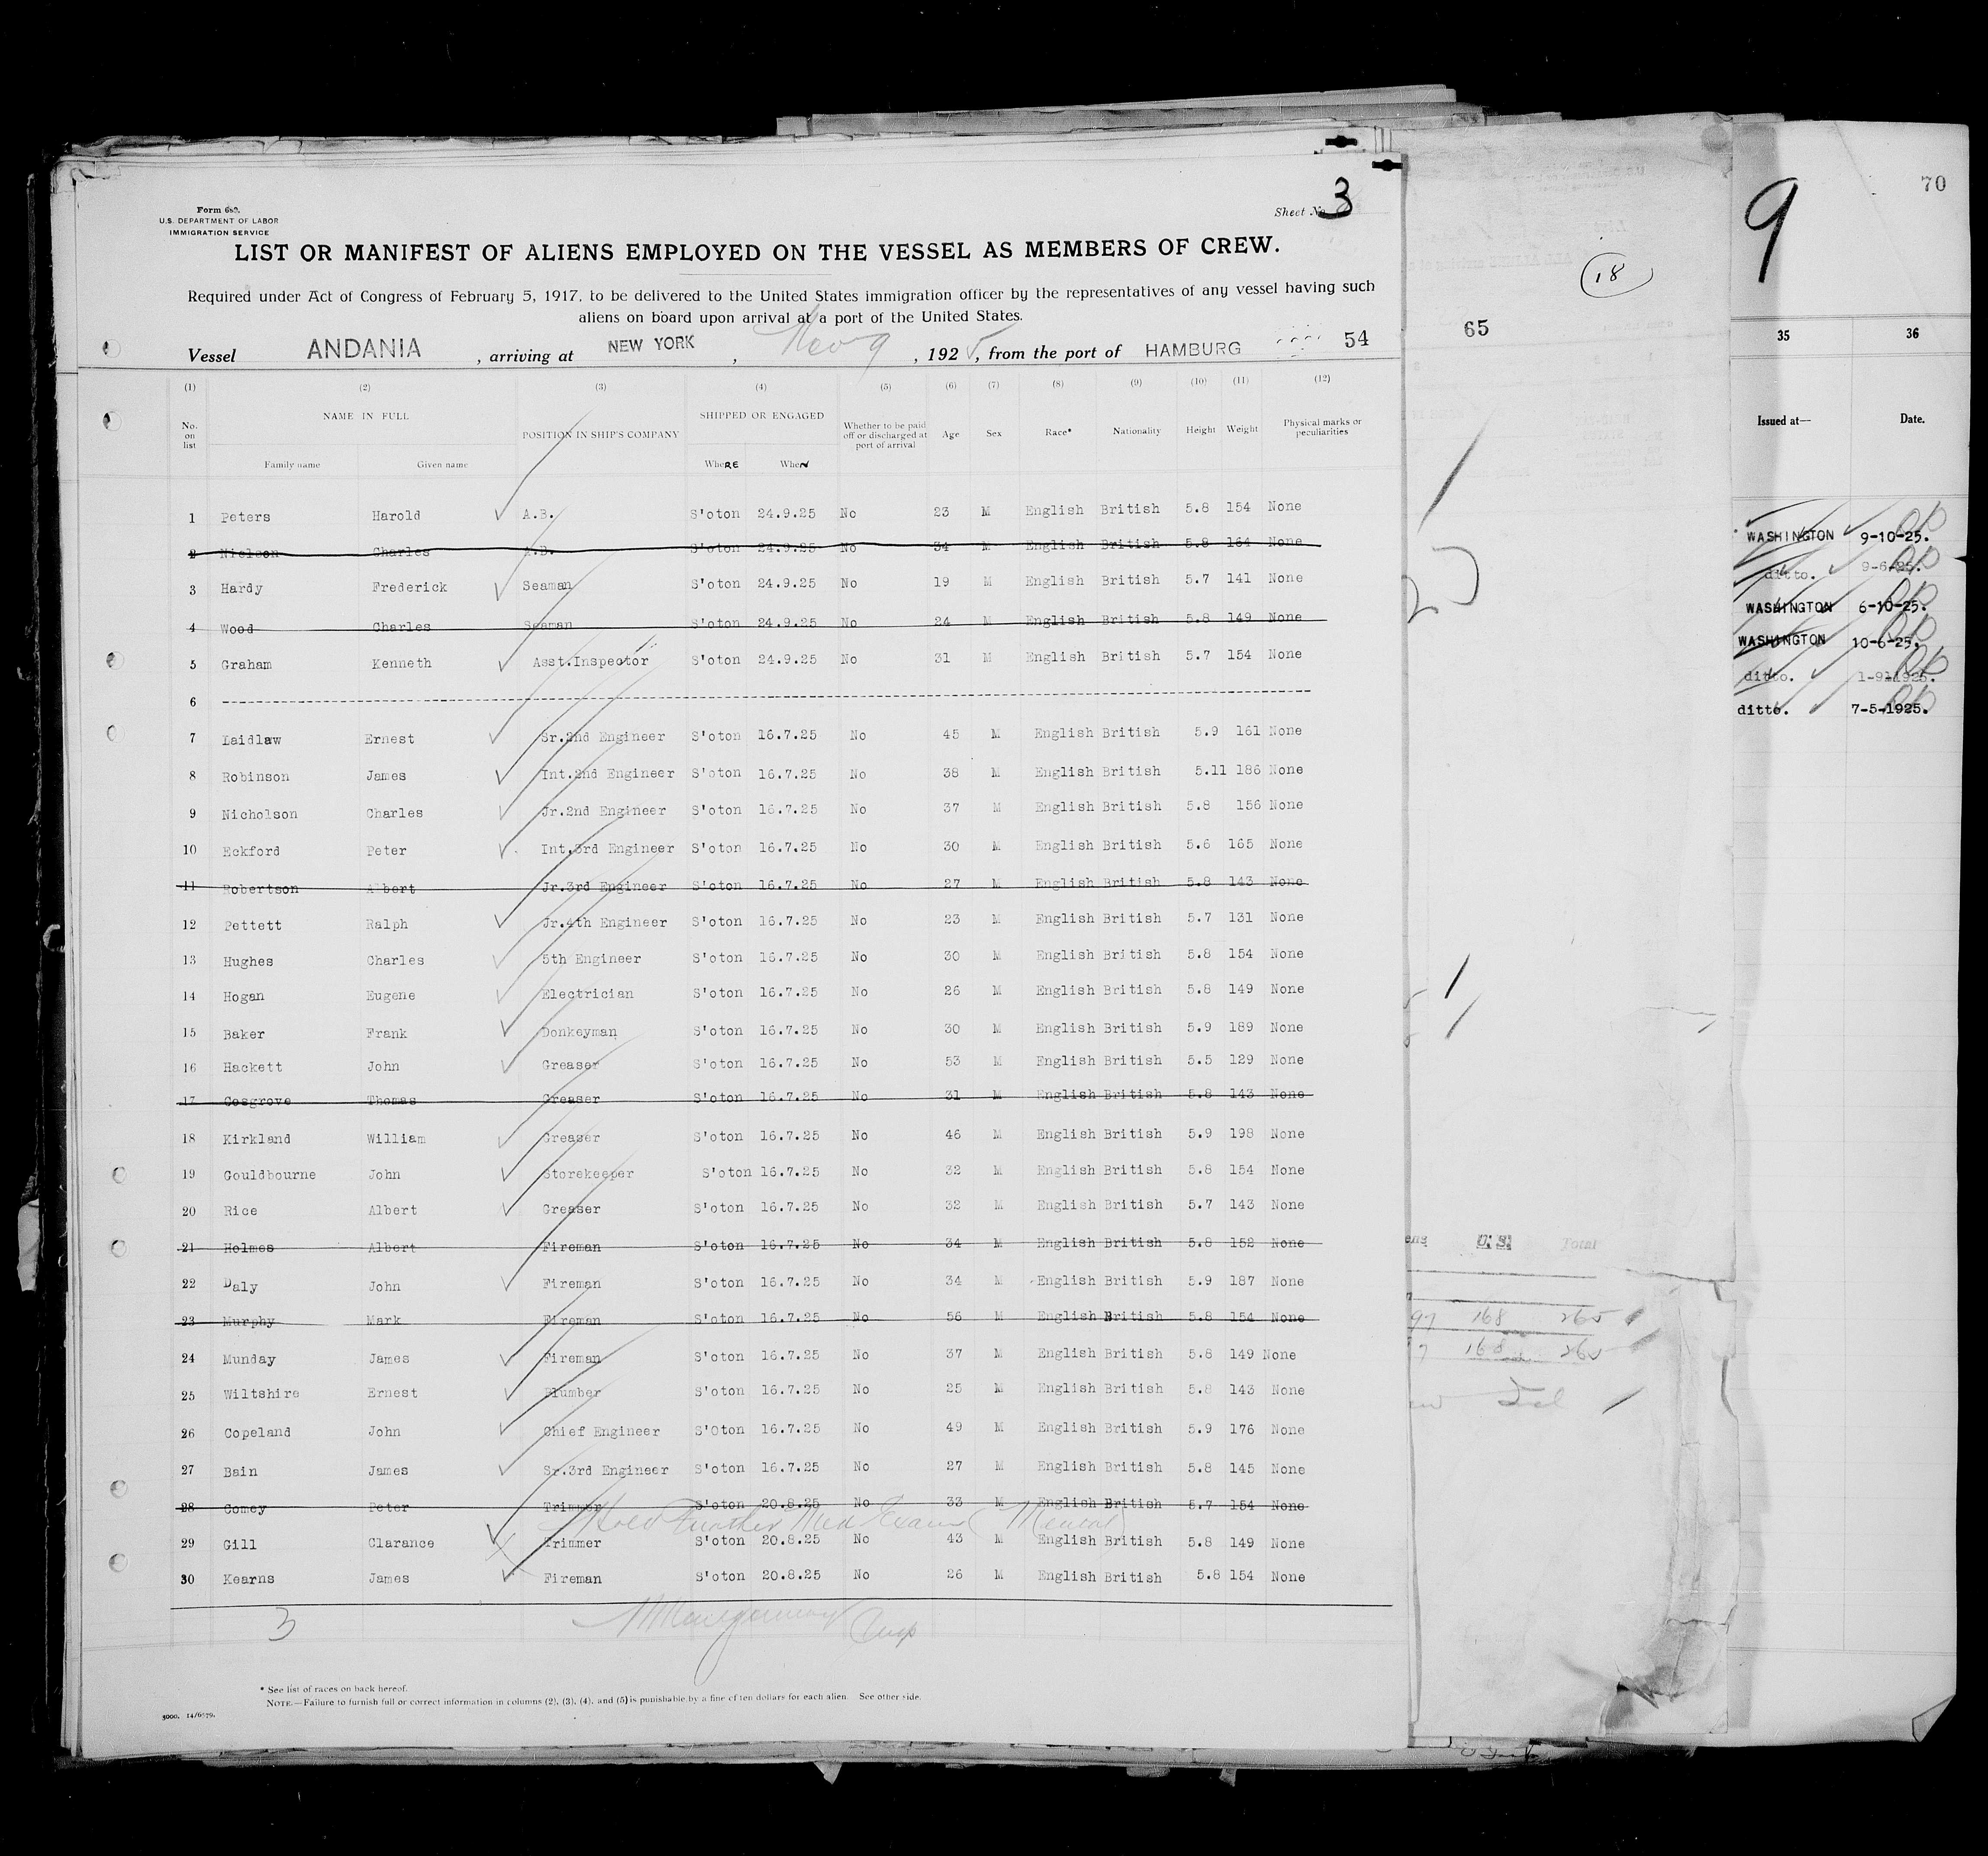 Form 689.
U.S. DEPARTMENT OF LABOR
IMMIGRATION SERVICE
Sheet No. 3
LIST OR MANIFEST OF ALIENS EMPLOYED ON THE VESSEL AS MEMBERS OF CREW.
Required under Act of Congress of February 5, 1917, to be delivered to the United States immigration officer by the representatives of any vessel having such
aliens on board upon arrival at a port of the United States.
Vessel ANDANIA , arriving at NEW YORK , Nov 9 , 1925, from the port of HAMBURG 54
(1) (2) (3) (4) (5) (6) (7) (8) (9) (10) (11) (12)
No. on list NAME IN FULL POSITION IN SHIP'S COMPANY SHIPPED OR ENGAGED Whether to be paid off or discharged at port of arrival Age Sex Race* Nationality Height Weight Physical marks or peculiarities
Family name Given name WheRE WheN
1 Peters Harold A.B. S'oton 24.9.25 No 23 M English British 5.8 154 None
2 Nielson Charles A.B. S'oton 24.9.25 No 34 M English British 5.8 164 None
3 Hardy Frederick Seaman S'oton 24.9.25 No 19 M English British 5.7 141 None
4 Wood Charles Seaman S'oton 24.9.25 No 24 M English British 5.8 149 None
5 Graham Kenneth Asst.Inspector S'oton 24.9.25 No 31 M English British 5.7 154 None
6 ----------
7 Laidlaw Ernest Sr.2nd Engineer S'oton 16.7.25 No 45 M English British 5.9 161 None
8 Robinson James Int.2nd Engineer S'oton 16.7.25 No 38 M English British 5.11 186 None
9 Nicholson Charles Jr.2nd Engineer S'oton 16.7.25 No 37 M English British 5.8 156 None
10 Eckford Peter Int.3rd Engineer S'oton 16.7.25 No 30 M English British 5.6 165 None
11 Robertson Albert Jr.3rd Engineer S'oton 16.7.25 No 27 M English British 5.8 143 None
12 Pettett Ralph Jr.4th Engineer S'oton 16.7.25 No 23 M English British 5.7 131 None
13 Hughes Charles 5th Engineer S'oton 16.7.25 No 30 M English British 5.8 154 None
14 Hogan Eugene Electrician S'oton 16.7.25 No 26 M English British 5.8 149 None
15 Baker Frank Donkeyman S'oton 16.7.25 No 30 M English British 5.9 189 None
16 Hackett John Greaser S'oton 16.7.25 No 53 M English British 5.5 129 None
17 Cosgrove Thomas Greaser S'oton 16.7.25 No 31 M English British 5.8 143 None
18 Kirkland William Greaser S'oton 16.7.25 No 46 M English British 5.9 198 None
19 Gouldbourne John Storekeeper S'oton 16.7.25 No 32 M English British 5.8 154 None
20 Rice Albert Greaser S'oton 16.7.25 No 32 M English British 5.7 143 None
21 Holmes Albert Fireman S'oton 16.7.25 No 34 M English British 5.8 152 None
22 Daly John Fireman S'oton 16.7.25 No 34 M English British 5.9 187 None
23 Murphy Mark Fireman S'oton 16.7.25 No 56 M English British 5.8 154 None
24 Munday James Fireman S'oton 16.7.25 No 37 M English British 5.8 149 None
25 Wiltshire Ernest Plumber S'oton 16.7.25 No 25 M English British 5.8 143 None
26 Copeland John Chief Engineer S'Oton 16.7.25 No 49 M English British 5.9 176 None
27 Bain James Sr.3rd Engineer S'oton 16.7.25 No 27 M English British 5.8 145 None
28 Comey Peter Trimmer S'oton 20.8.25 No 33 M English British 5.7 154 None
Hold Further Med Exam (Mental)
29 Gill Clarance Trimmer S'oton 20.8.25 No 43 M English British 5.8 149 None
30 Kearns James Fireman S'oton 20.8.25 No 26 M English British 5.8 154 None
3 Montgomery Insp
* See list of races on back hereof.
NOTE.—Failure to furnish full or correct information in columns (2), (3), (4), and (5) is punishable by a fine of ten dollars for each alien. See other side.
3000. 14/6579.
18
65
U.S. Total
97 168 265
7 168 265
9
70
35 36
Issued at— Date.
WASHINGTON 9-10-25.
ditto. 9-6-25.
WASHINGTON 6-10-25.
WASHINGTON 10-6-25.
ditto.
ditto. 7-5-1925.